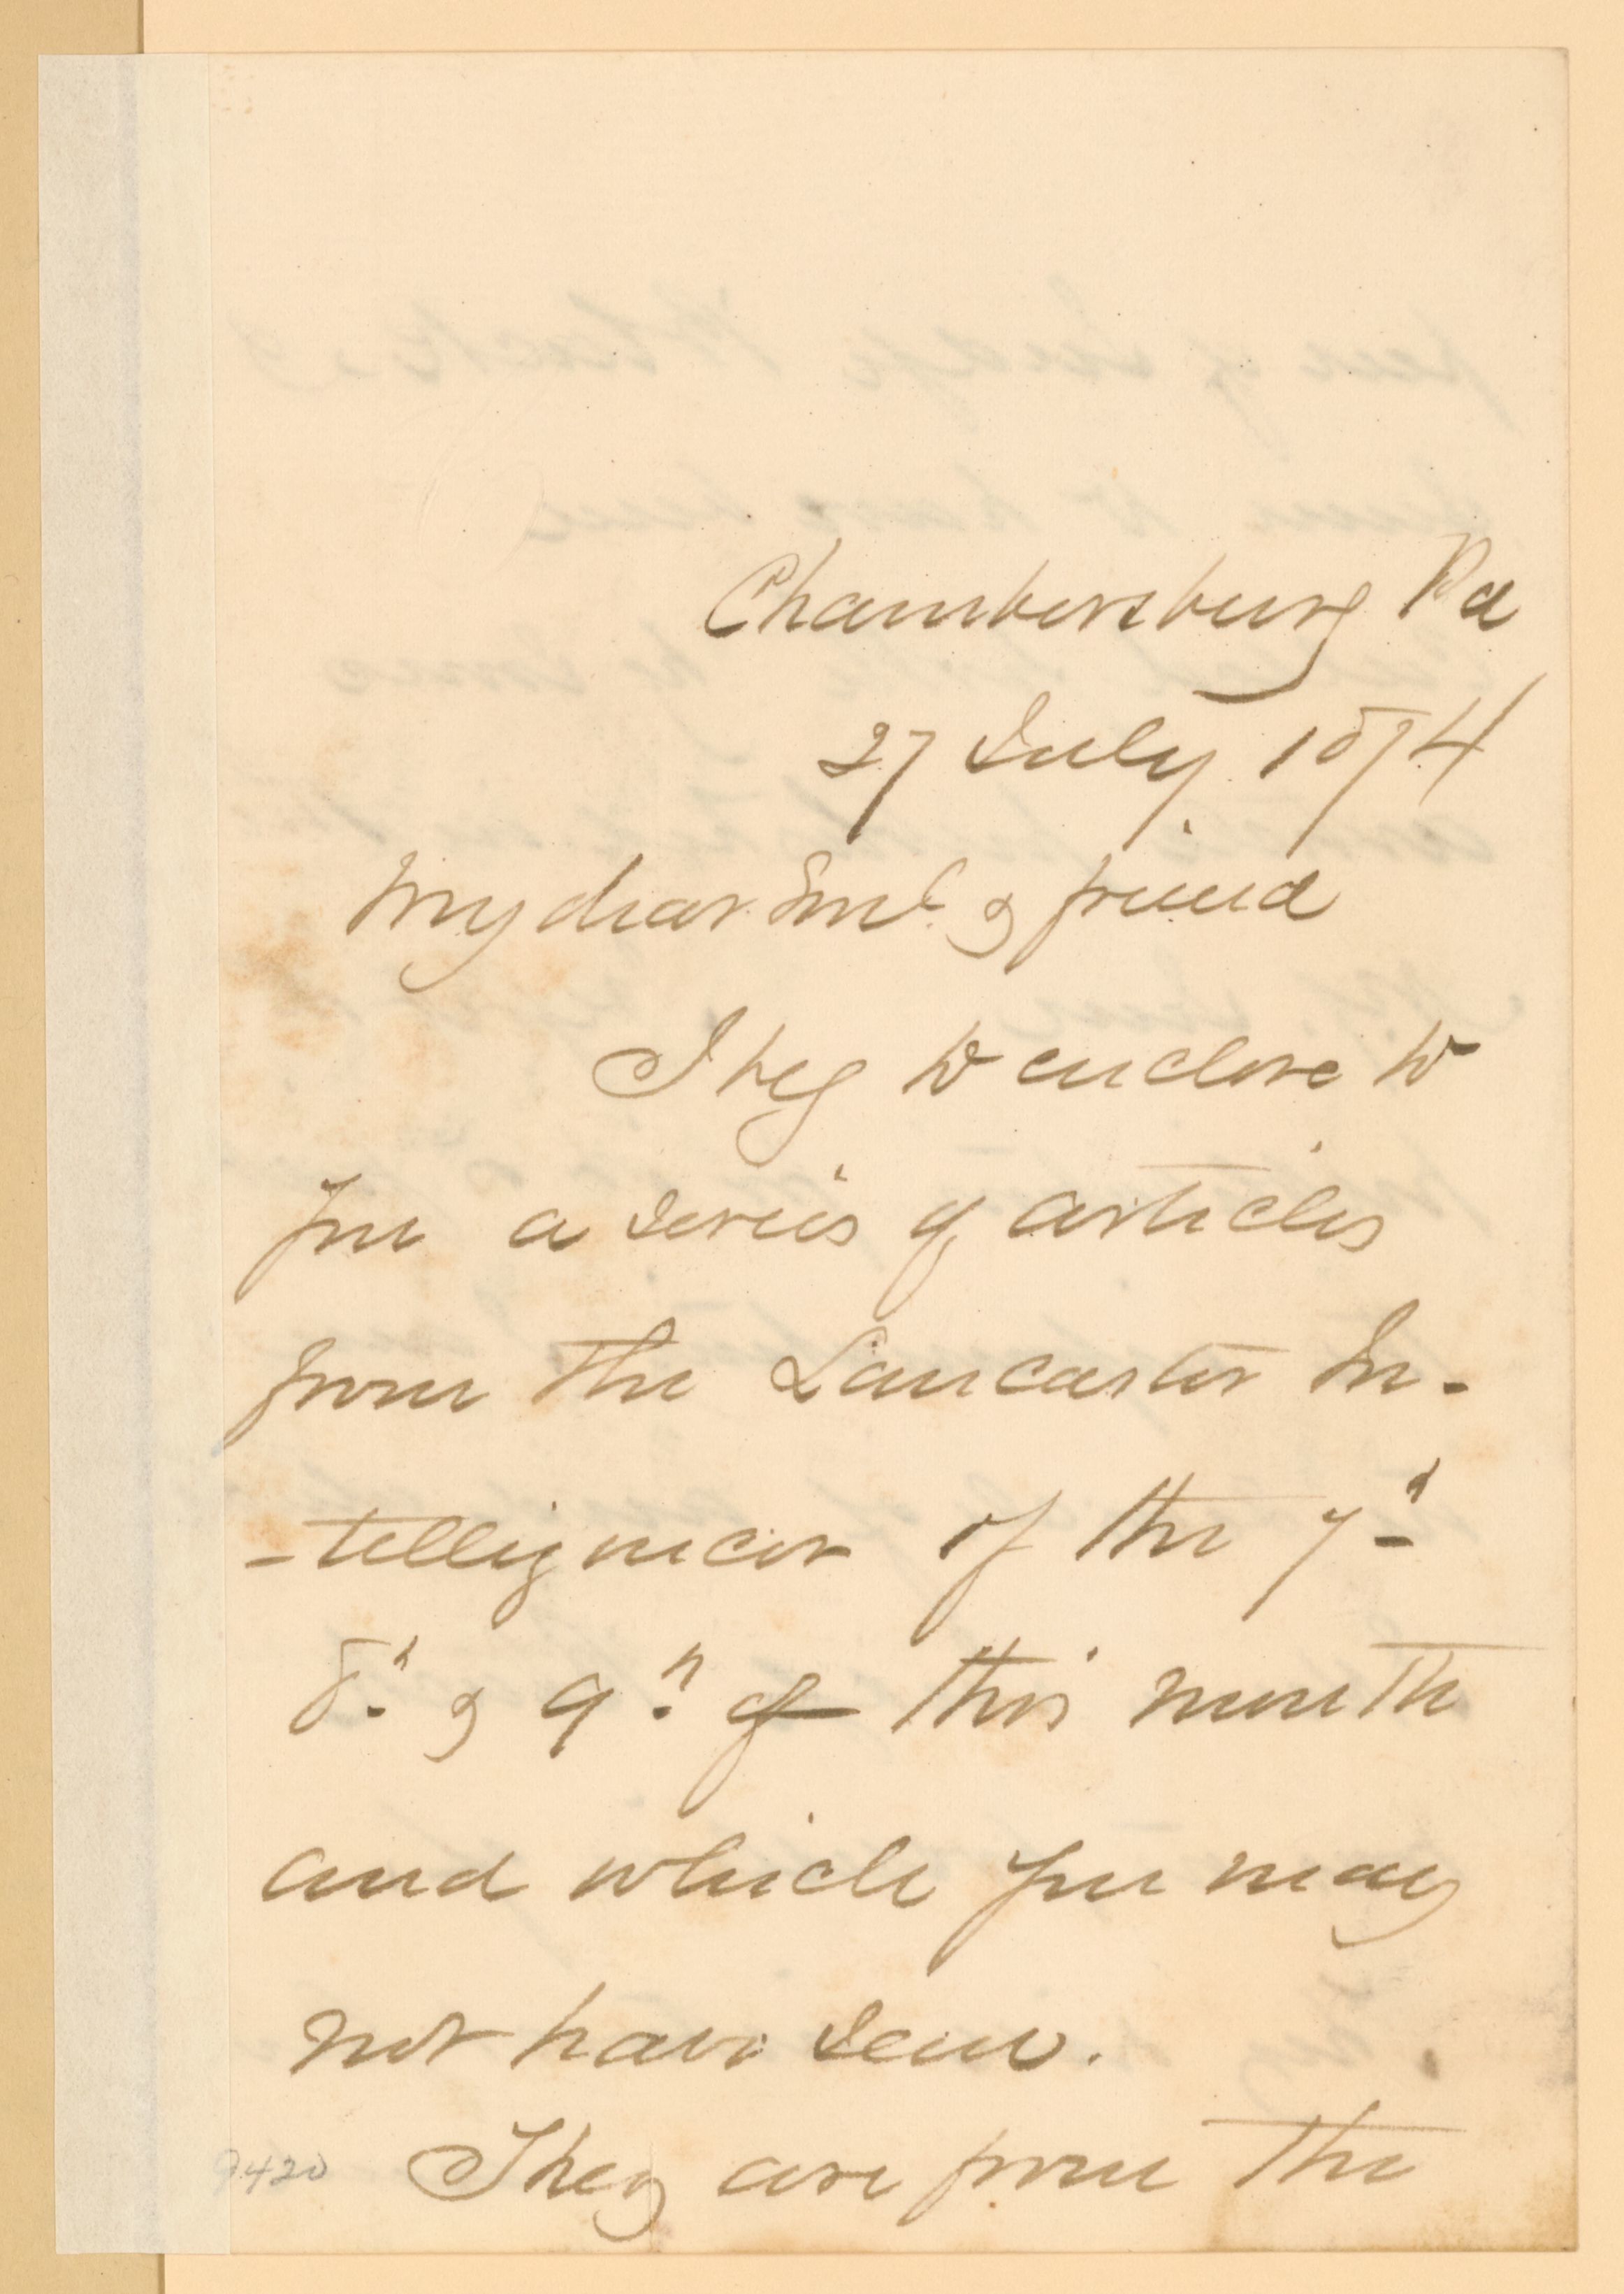 Chambersburg Pa
27 July 1874
My dear & friend
I beg to enclose to
you a series of articles
from the Lancaster In-
-telligencer of the 7th
8th & 9th of this month
and which you may
not have seen.
They are from the
9420